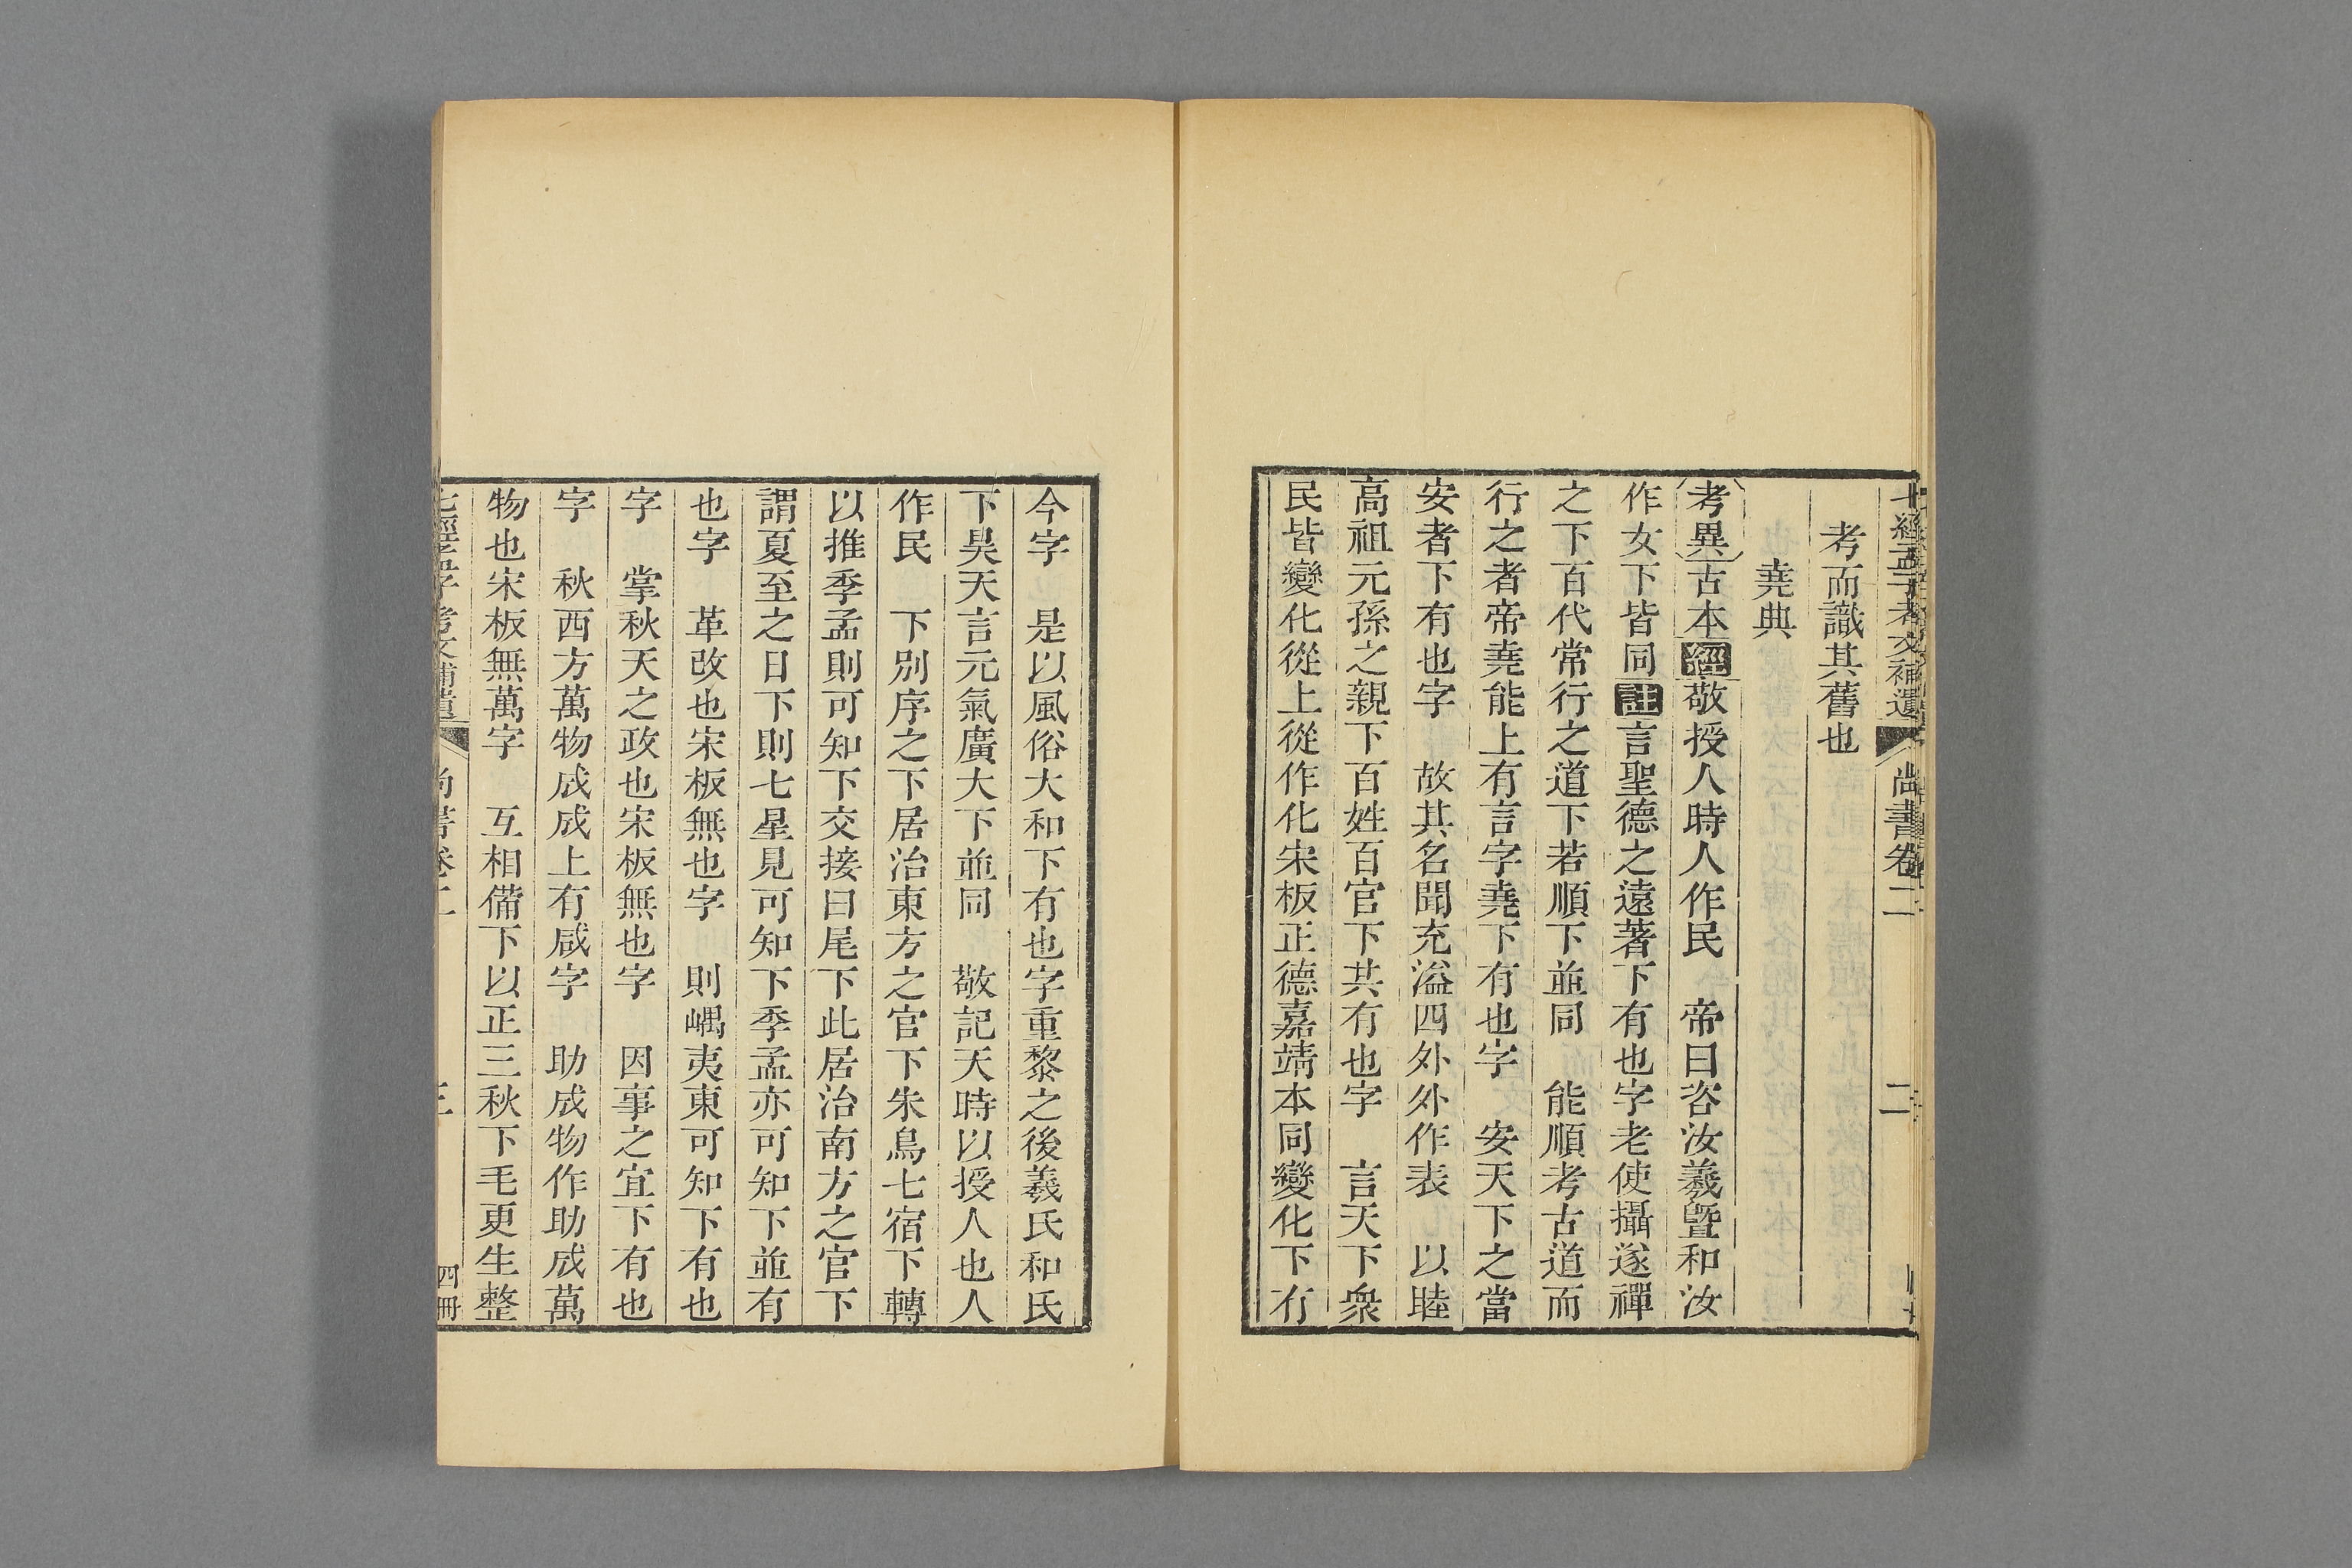 七經孟子考文補遺 尚書卷二 二
考而識其舊也
堯典
考異古本經敬授人時人作民 帝曰咨汝羲曁和汝
作女下皆同註言聖德之遠著下有也字老使攝遂禪
之下百代常行之道下若順下並同 能順考古道而
行之者帝堯能上有言字堯下有也字 安天下之當
安者下有也字 故其名聞充溢四外外作表 以睦
高祖元孫之親下百姓百官下共有也字 言天下衆
民皆變化從上從作化宋板正德嘉靖本同變化下有
今字 是以風俗大和下有也字重黎之後羲氏和氏
下昊天言元氣廣大下並同 敬記天時以授人也人
作民 下別序之下居治東方之官下朱鳥七宿下轉
以推季孟則可知下交接曰尾下此居治南方之官下
謂夏至之日下則七星見可知下季孟亦可知下並有
也字 革改也宋板無也字 則嵎夷東可知下有也
字 掌秋天之政也宋板無也字 因事之宜下有也
字 秋西方萬物成成上有咸字 助成物作助成萬
物也宋板無萬字 互相備下以正三秋下毛更生整
七經孟子考文補遺 尚書卷二 三 四冊